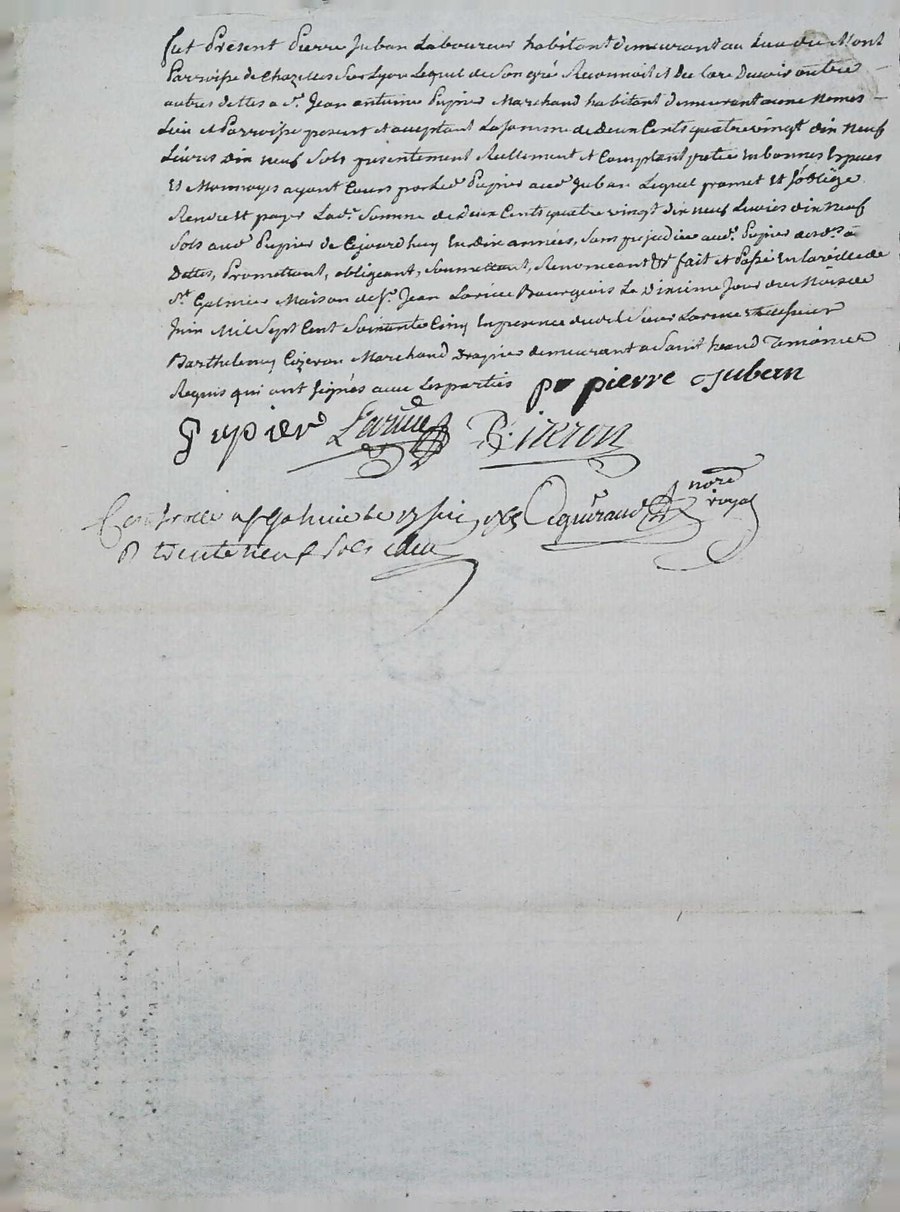 fut Present Pierre Juban Laboureur habitant demeurant au Lieu du Mont
Parroisse de Chazelles Sur Lyon Lequel de Son gré Reconnoit et Declare Devoir outre
autres dettes a Sr. Jean antoine Pupier Marchand habitant demeurant au memes
Lieu et Parroisse present et acceptant La Somme de deux Cents quatre vingt dix neuf
Livres dix neuf Sols presentement Reellement et Comptant pretée en bonnes Especes
et Monnoyes ayant Cours par Led. Pupier aud. Juban Lequel promet et S'oblige
Rendre et payer Lad. Somme de deux Cents quatre vingt dix neuf Livres dix neuf
Sols aud. Pupier de Cejourdhuy En dix années, Sans prejudice aud. Pupier de Sds. a
Dettes, Promettant, obligeant, Soumettant, Renonceant &c fait et Passé En la ville de
St. Galmier Maison de Sr. Jean Larive Bourgeois Le Dixieme Jour du Mois de
Juin Mil Sept Cent Soixante Cinq En presence dudit Sieur Larive et de Sieur
Barthelemy Marchand Drapier demeurant a Saint heand Temoins
Requis qui ont Signés avec Les parties pr pierre Juban
Pupier Larive
Controllé a St Galmier Le 17 juin 1765 no.re
R trente neuf Sols royal